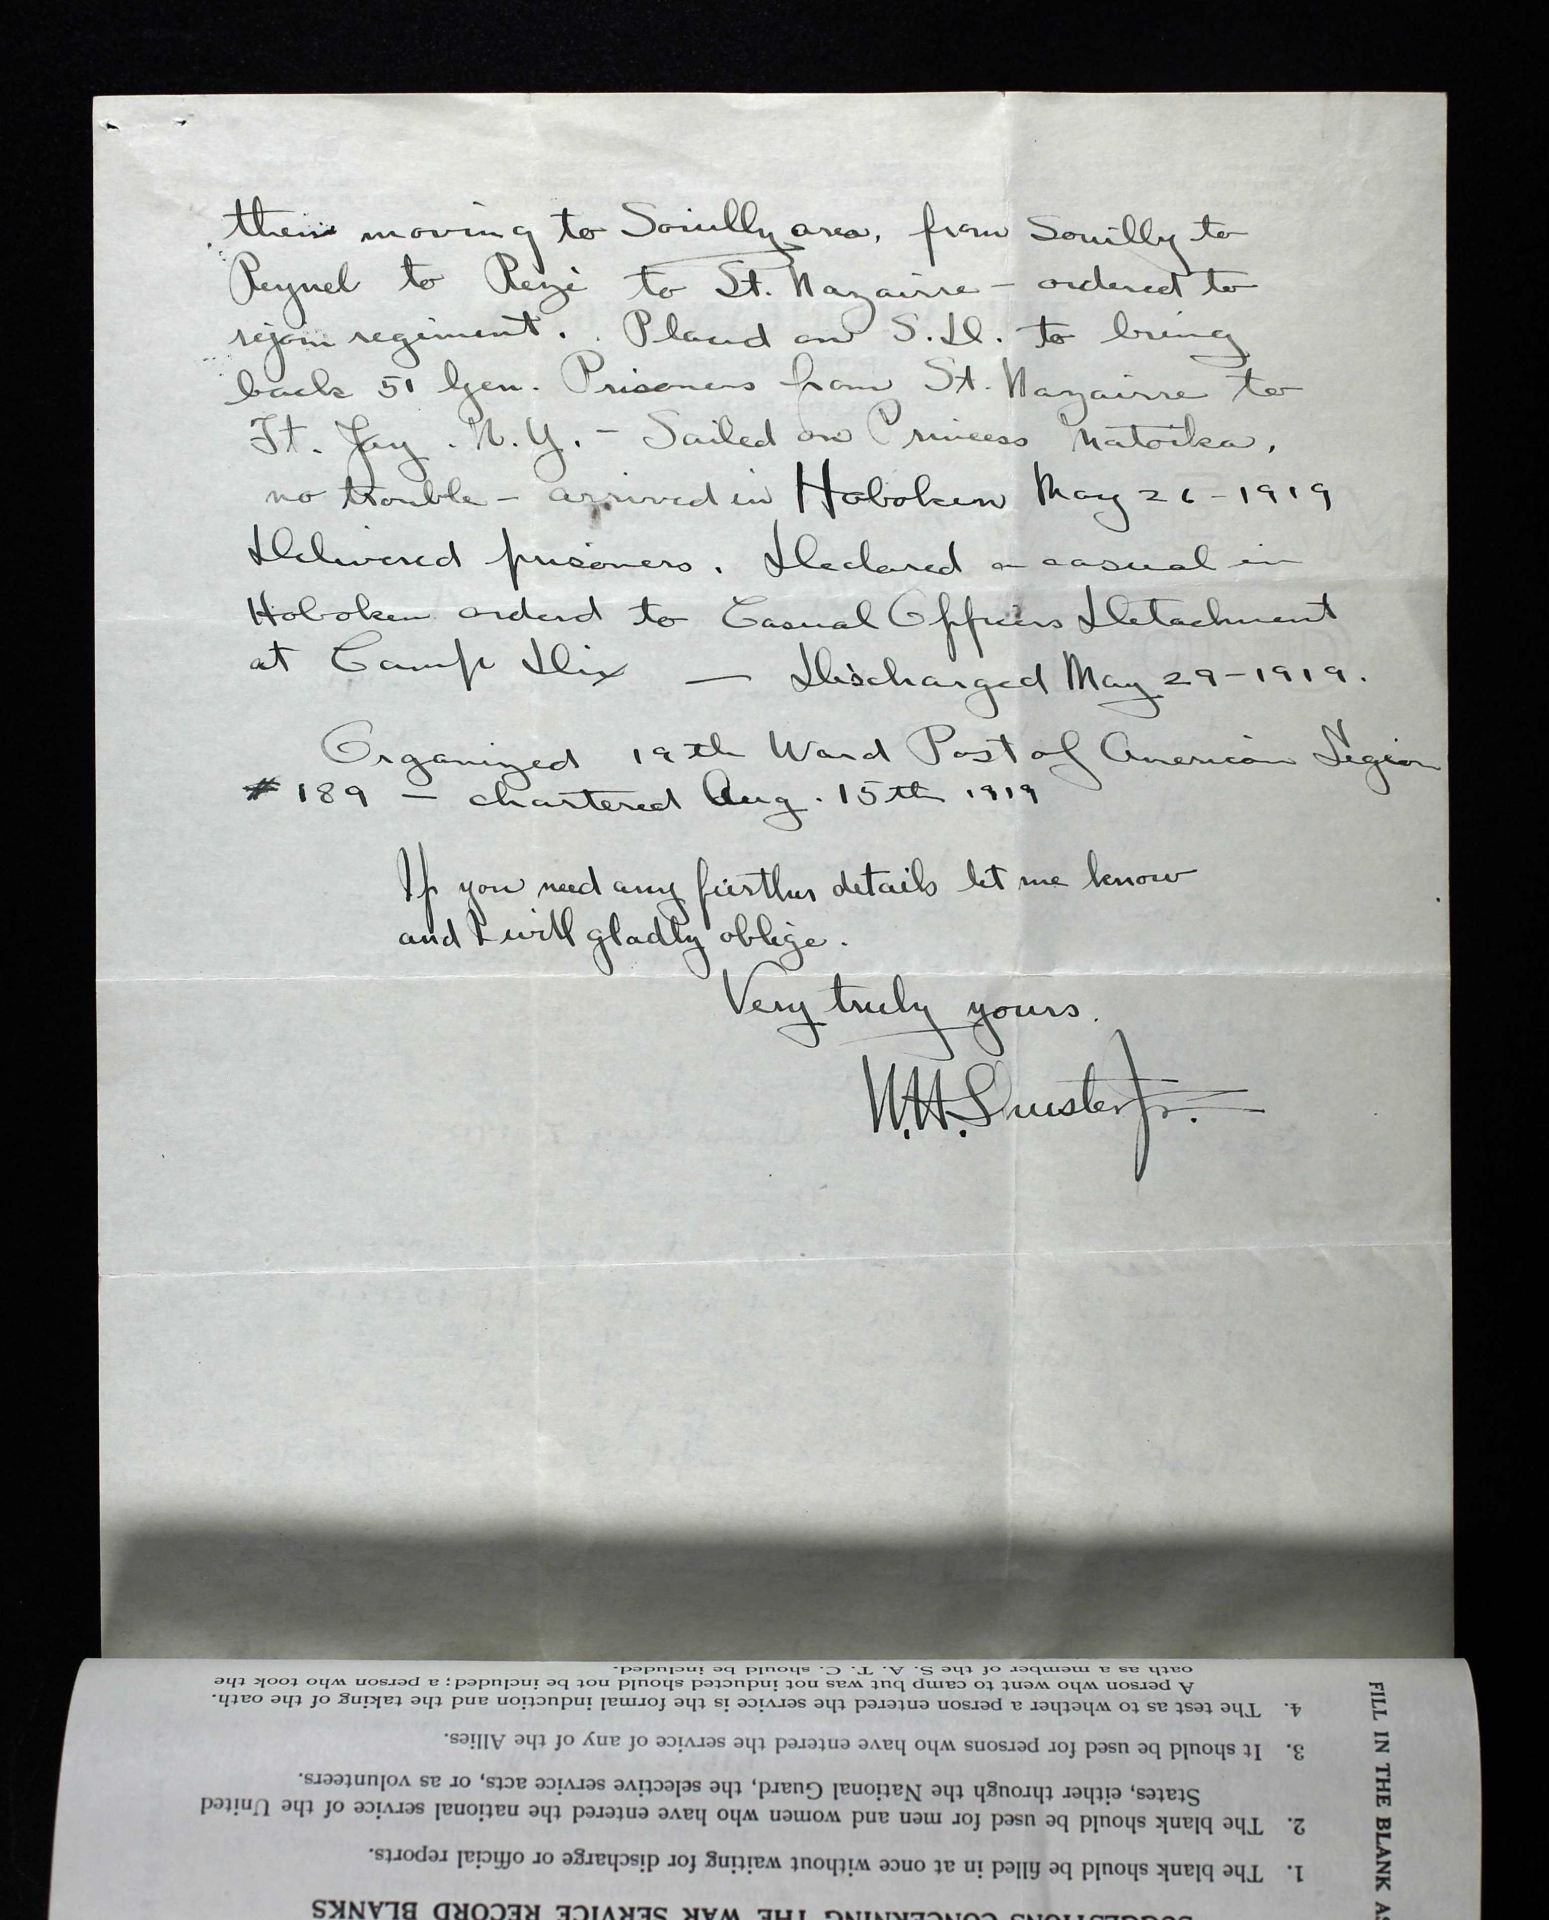 then moving to Souilly area, from Souilly to
Reynel to Rezé to St. Nazairre – ordered to
rejoin regiment. Placed on S.D. to bring
back 51 Gen. Prisoners from St. Nazairre to
Ft. Jay. N.Y. – Sailed on Princess Matoika,
no trouble – arrived in Hoboken May 26 – 1919
Delivered prisoners. Declared a casual in
Hoboken orderd to Casual Officers Detachment
at Camp Dix — Discharged May 29 – 1919.
Organized 19th Ward Post of American Legion
# 189 – chartered Aug. 15th 1919
If you need any further details let me know
and I will gladly oblige.
Very truly yours.
W.H. Jr.
FILL IN THE BLANK
SUGGESTIONS CONCERNING THE WAR SERVICE RECORD BLANKS
1. The blank should be filled in at once without waiting for discharge or official reports.
2. The blank should be used for men and women who have entered the national service of the United
States, either through the National Guard, the selective service acts, or as volunteers.
3. It should be used for persons who have entered the service of any of the Allies.
4. The test as to whether a person entered the service is the formal induction and the taking of the oath.
A person who went to camp but was not inducted should not be included; a person who took the
oath as a member of the S. A. T. C. should be included.